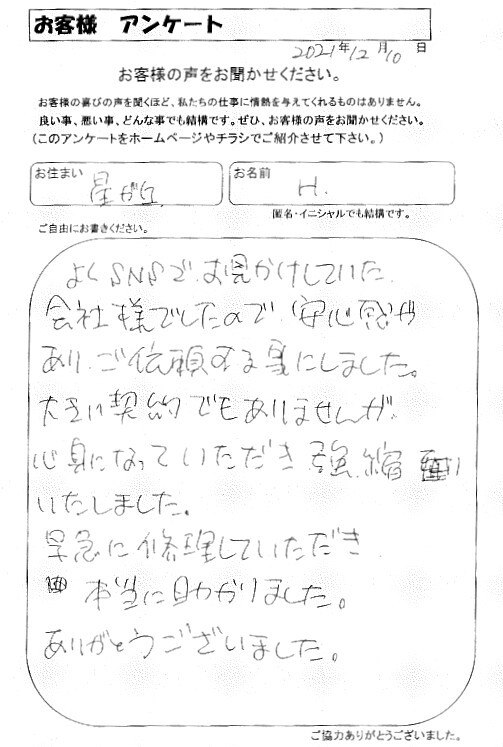 お客様 アンケート
2021年12月10日
お客様の声をお聞かせください。
お客様の喜びの声を聞くほど、私たちの仕事に情熱を与えてくれるものはありません。
良い事、悪い事、どんな事でも結構です。ぜひ、お客様の声をお聞かせください。
(このアンケートをホームページやチラシでご紹介させて下さい。)
お住まい 星が丘 お名前 H.
匿名・イニシャルでも結構です。
ご自由にお書きください。
よくSNSでお見かけしていた
会社様でしたので、安心感が
あり、ご依頼する事にしました。
大きい契約でもありませんが
心身になっていただき強縮
いたしました。
早急に修理していただき
本当に助かりました。
ありがとうございました。
ご協力ありがとうございました。